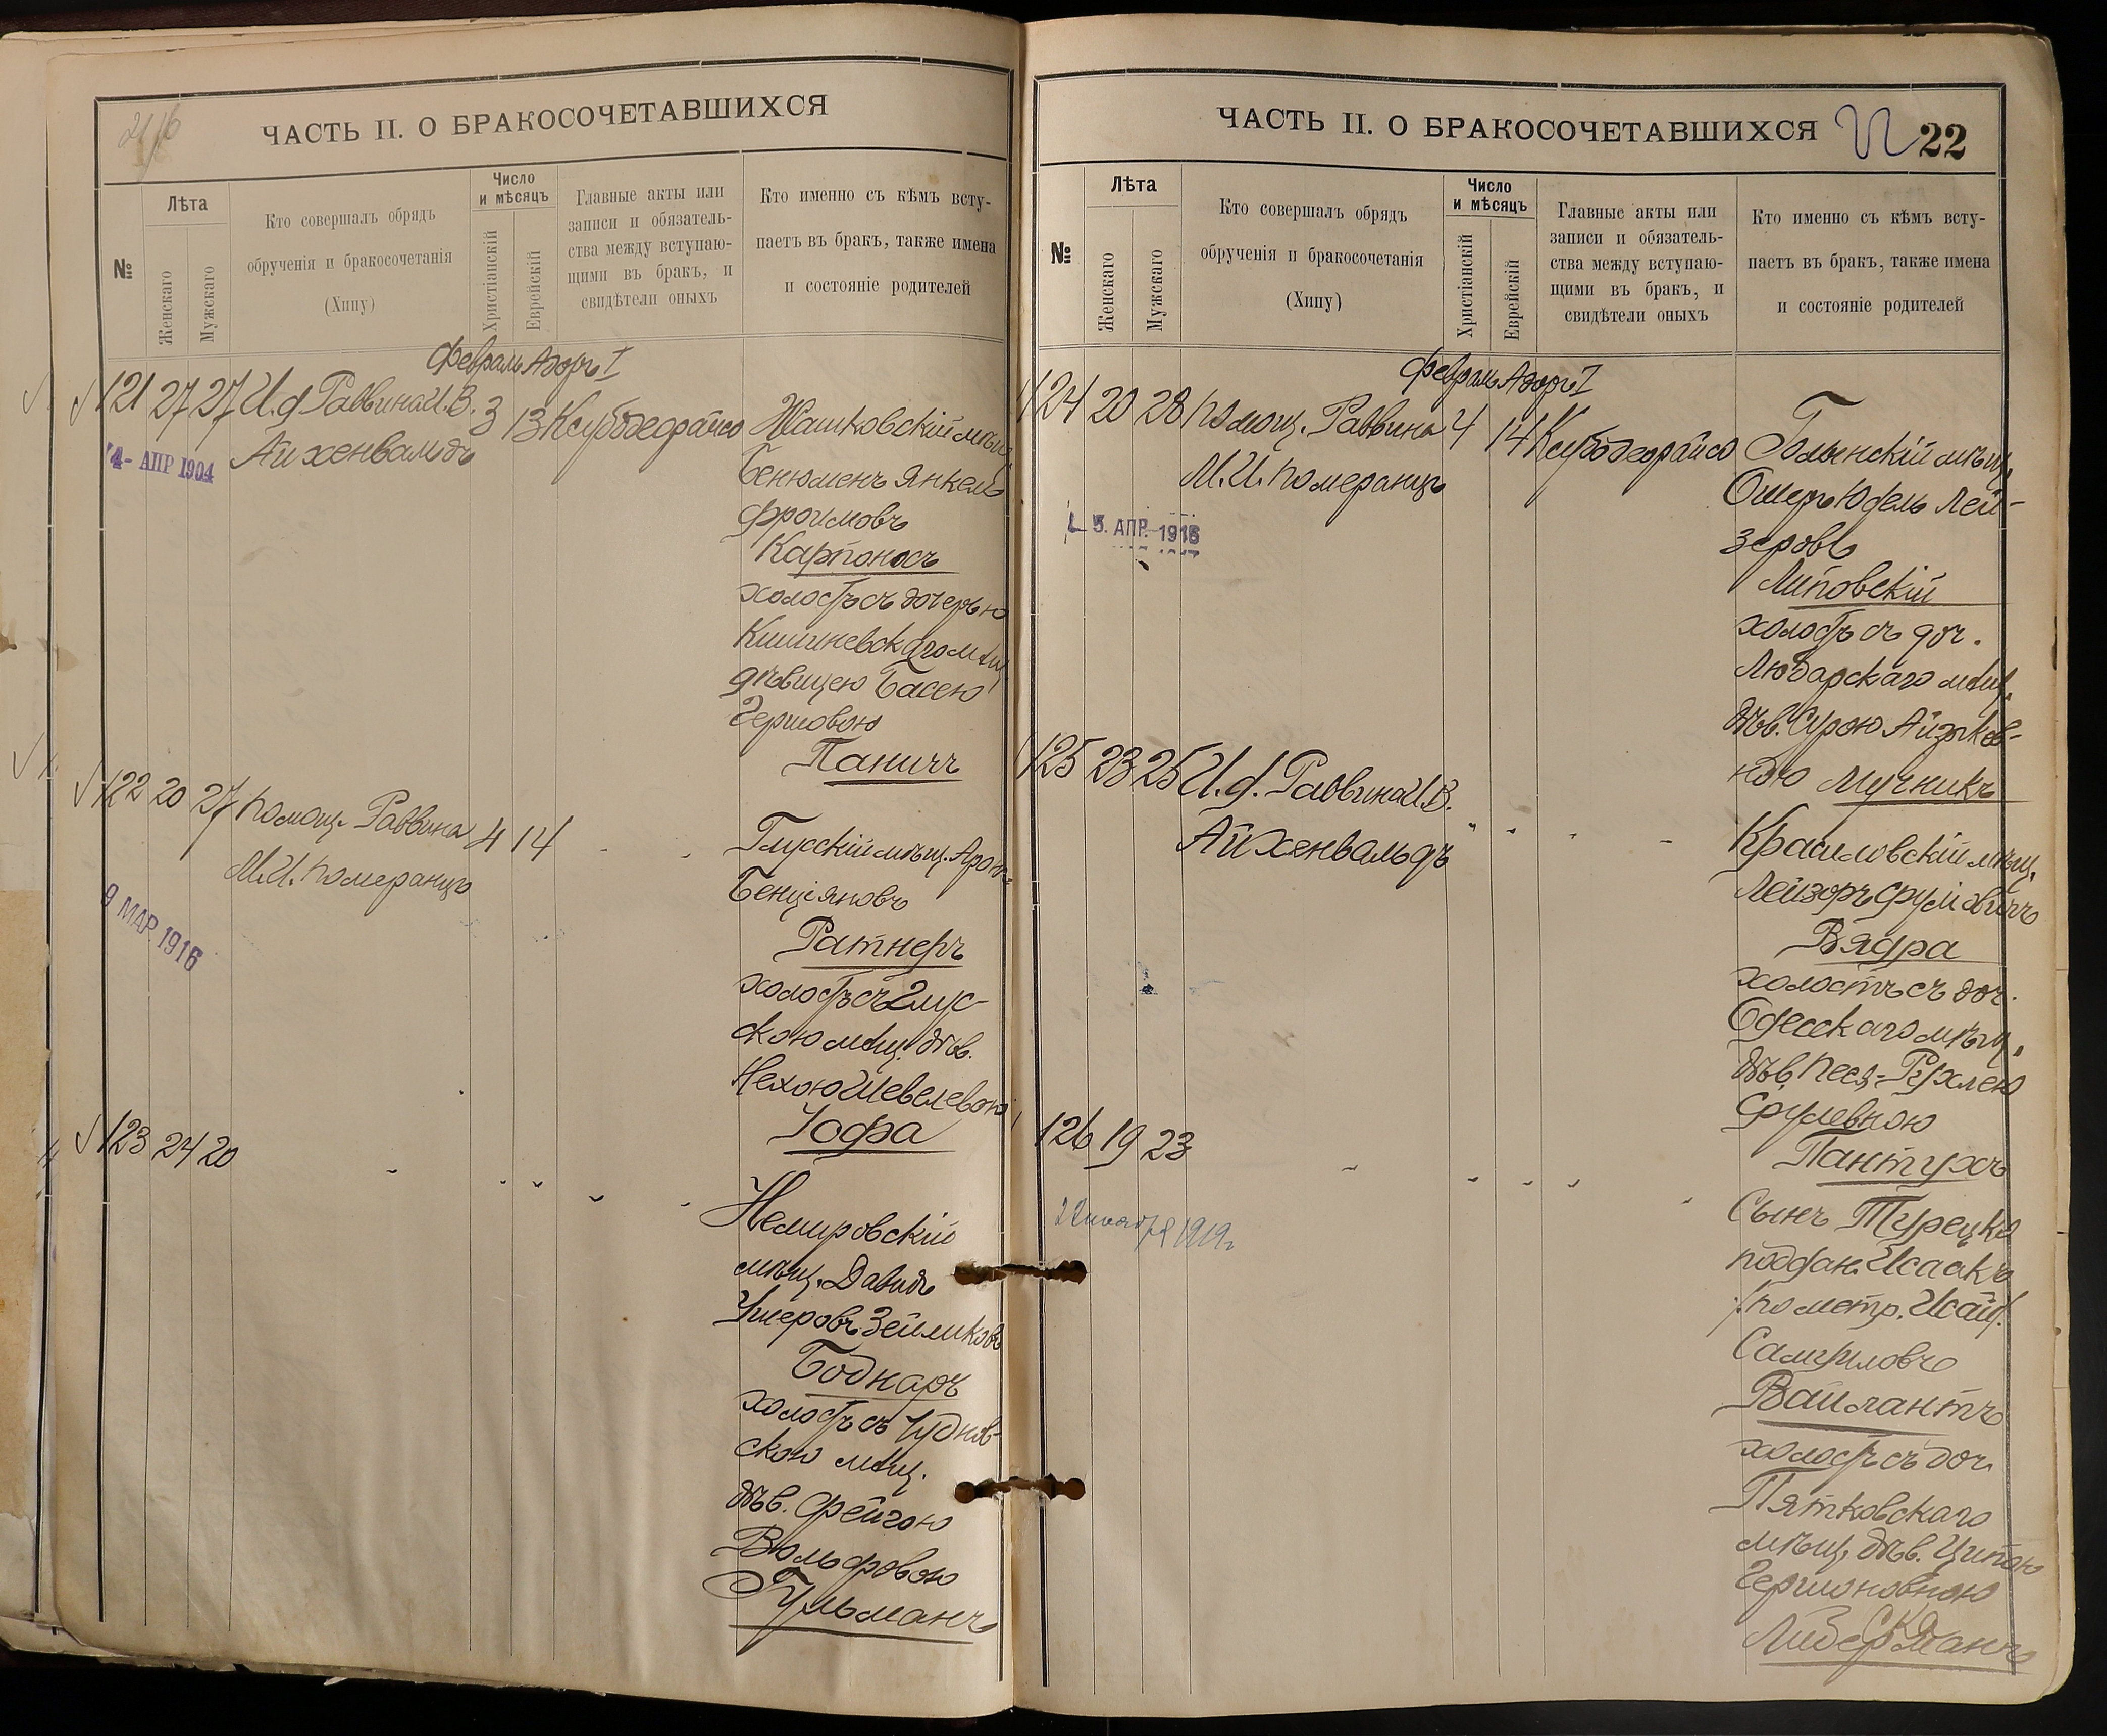 ЧАСТЬ II. О БРАКОСОЧЕТАВШИХСЯ
№
Лѣта
Женскаго
Мужскаго
Кто совершалъ обрядъ
обрученія и бракосочетанія
(Хипу)
Число
и мѣсяцъ
Христіанскій
Еврейскій
Главные акты или
записи и обязатель-
ства между вступаю-
щими въ бракъ, и
свидѣтели оныхъ
Кто именно съ кѣмъ всту-
паетъ въ бракъ, также имена
и состояніе родителей
Февраль Адоръ I
121 27 27 И.д. Раввина И.В. 3 13
Айхенвальдъ
4- АПР 1904
Жашковскій мѣщ.
Бенюменъ Янкель
Фроимовъ
Карпоносъ
холостъ съ дочерью
Кишиневскаго мѣщ.
дѣвицею Басею
Гершовою
Паничъ
122 20 27 Помощ. Раввина 4 14
М.И. Померанцъ
9 МАР. 1916
Глусскій мѣщ. Аронъ
Бенціяновъ
Ратнеръ
холостъ съ Глус-
скою мѣщ. дѣв.
Нехою Шевелевою
Іофа
123 24 20
Немировскій
мѣщ. Давидъ
Ушеровъ Зейликовъ
Боднаръ
холостъ съ Чуднов-
скою мѣщ.
дѣв. Фейгою
Вольфовою
Гульманъ
ЧАСТЬ II. О БРАКОСОЧЕТАВШИХСЯ
22
№
Лѣта
Женскаго
Мужскаго
Кто совершалъ обрядъ
обрученія и бракосочетанія
(Хипу)
Число
и мѣсяцъ
Христіанскій
Еврейскій
Главные акты или
записи и обязатель-
ства между вступаю-
щими въ бракъ, и
свидѣтели оныхъ
Кто именно съ кѣмъ всту-
паетъ въ бракъ, также имена
и состояніе родителей
Февраль Адоръ I
124 20 28 Помощ. Раввина 4 14
М.И. Померанцъ
5. АПР. 1916
мѣщ.
Ошеръ Юдель Лей-
зеровъ
Липовскій
холостъ съ доч.
Любарскаго мѣщ.
дѣв. Сурою Айзиков-
ною Мучникъ
125 23 25 И.д. Раввина И.В.
Айхенвальдъ
Красиловскій мѣщ.
Лейзоръ
Вядра
холостъ съ доч.
Одесскаго мѣщ.
дѣв. Песя-Рухлею
Срулевною
Пантухъ
126 19 23
1919г.
Сынъ Турецк.
поддан. Исаакъ
/по метр. Исай/
Самуиловъ
Вайлантъ
холостъ съ доч.
Пятковскаго
мѣщ. дѣв. Ципою
Гершоновною
Либерманъ